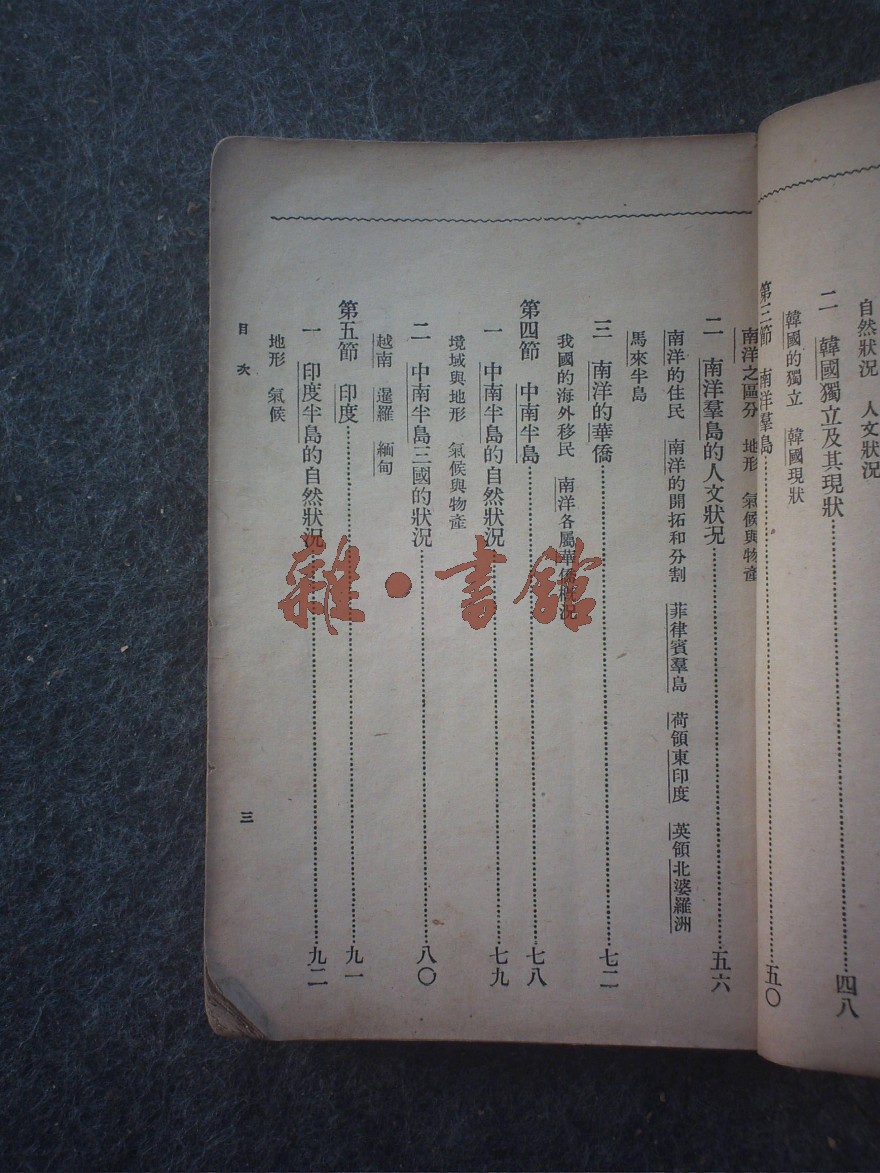 自然狀况　人文狀况
二　韓國獨立及其現狀……四八
韓國的獨立　韓國現狀
第三節　南洋羣島……五〇
南洋之區分　地形　氣候與物產
二　南洋羣島的人文狀况……五六
南洋的住民　南洋的開拓和分割　菲律賓羣島　荷領東印度　英領北婆羅洲
馬來半島
三　南洋的華僑……七二
我國的海外移民　南洋各屬華僑概况
第四節　中南半島……七八
一　中南半島的自然狀况……七九
境域與地形　氣候與物產
二　中南半島三國的狀况……八〇
越南　暹羅　緬甸
第五節　印度……九一
一　印度半島的自然狀况……九二
地形　氣候
目次　三
雜·書館